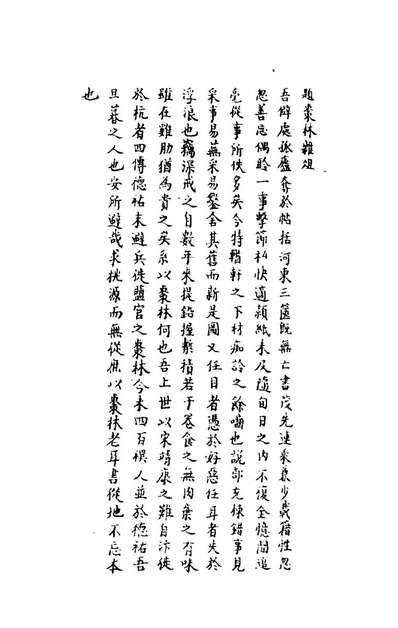 題棗林雜俎
吾僻處孤廬奔於帖括河東三篋既無亡書茂先連乘裒少載籍性忽
忽善忘偶聆一事擊節私快適穎紙未及隨旬日之內不復全憶間追
憶從事所佚多矣今特輶軒之下材痴詅之餘嚙也說部充棟錯事見
采事易蕪采易鑿舍其舊而新是圖又任目者憑於好惡任耳者失於
浮浪也竊深戒之自數年來提鉛握槧積若干卷食之無肉棄之有味
雖在雞肋猶為貴之矣系以棗林何也吾上世以宋靖康之難自汴徙
於杭者四傳德祐末避兵徙鹽官之棗林今未四百禩人並於德祐吾
旦暮之人也安所避哉求桃源而無從庶以棗林老耳書從地不忘本
也